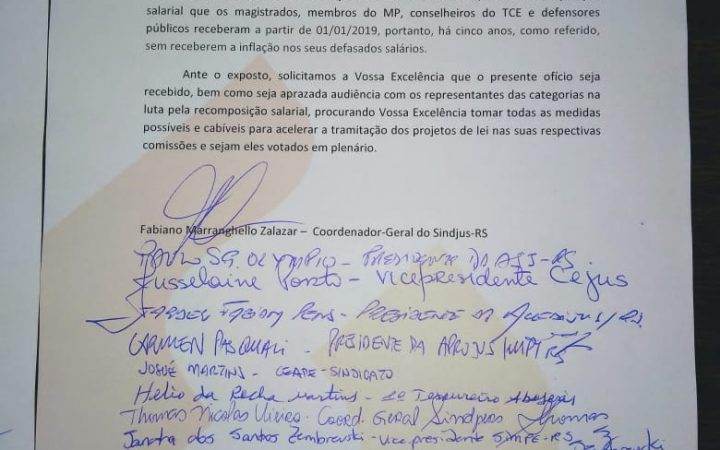 salarial que os magistrados, membros do MP, conselheiros do TCE e defensores
públicos receberam a partir de 01/01/2019, portanto, há cinco anos, como referido,
sem receberem a inflação nos seus defasados salários.
Ante o exposto, solicitamos a Vossa Excelência que o presente ofício seja
recebido, bem como seja aprazada audiência com os representantes das categorias na
luta pela recomposição salarial, procurando Vossa Excelência tomar todas as medidas
possíveis e cabíveis para acelerar a tramitação dos projetos de lei nas suas respectivas
comissões e sejam eles votados em plenário.
Fabiano Marranghello Zalazar – Coordenador-Geral do Sindjus-RS
PAULO OLYMPIO - PRESIDENTE DA ASJ-RS
Jusselaine Porto - Vicepresidente Cejus
FABION - PRESIDENTE DA
CARMEN PASQUALI - PRESIDENTE DA APROJUS/MP RS
JOSUÉ MARTINS - CEAPE-SINDICATO
Helio da Rocha Martins - Tesoureiro
Thomas Nicolas Vieira - Coord. Geral Sindpers Thomas
dos Santos Zembrewski - vice presidente SIMPE-RS